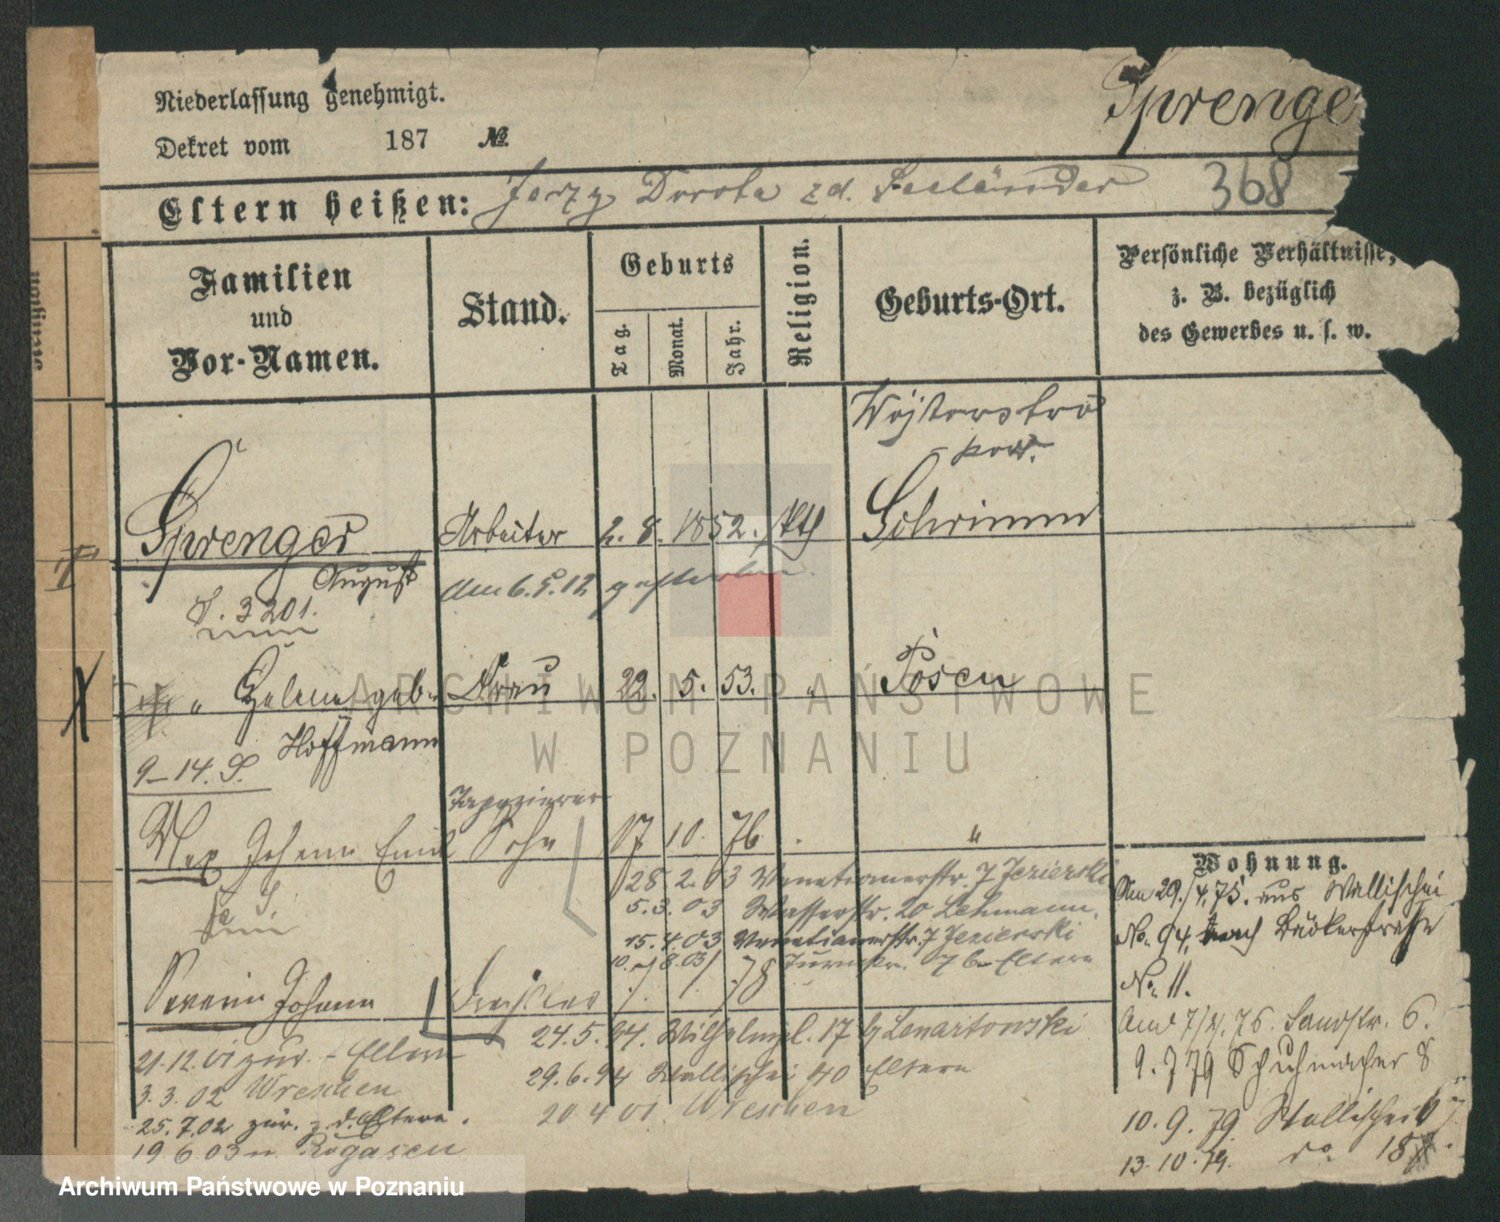 Niederlassung genehmigt.
Dekret vom 187 №
Sprenge
Eltern heißen: Jerzy Dorota zd. Seeländer 368
Familien
und
Vor-Namen.
Stand.
Geburts
Tag. Monat. Jahr.
Religion.
Geburts-Ort.
Persönliche Verhältnisse,
z. B. bezüglich
des Gewerbes u. s. w.
pow.
Sprenger Arbeiter 2. 8. 1852. kth Schrimm
August
am 6. 5. 12 gestorben.
S. 3201.
" geb. Frau 22. 5. 53. " Posen
Hoffmann
9-14. S.
Tapezierer
Max Johann Emil Sohn 17 10. 76 . "
28. 2. 03 Venetianerstr. 7 Jezierski
5. 3. 03 Wasserstr. 20 Lehmann.
15. 4. 03 Venetianerstr. 7 Jezierski
Eltern
Severin Johann 78
24. 5. 94. Wilhelmpl. 17 b/ Lenartowski
29. 6. 94 Wallischei 40 Eltern
20. 4 01. Wreschen
21. 12. 01 zur. - Eltern
3. 3. 02 Wreschen
25. 7. 02 zur. z. d. Eltern.
19. 6. 03 n. Rogasen
Wohnung.
Am 29./4. 75. aus Wallischei
No. 94, nach Bäckerstraße
No. 11.
Sandstr. 6.
9. 7 79 Schuhmacher 8
10. 9. 79 Wallischei
13. 10. 79.
ARCHIWUM PAŃSTWOWE
W POZNANIU
Archiwum Państwowe w Poznaniu